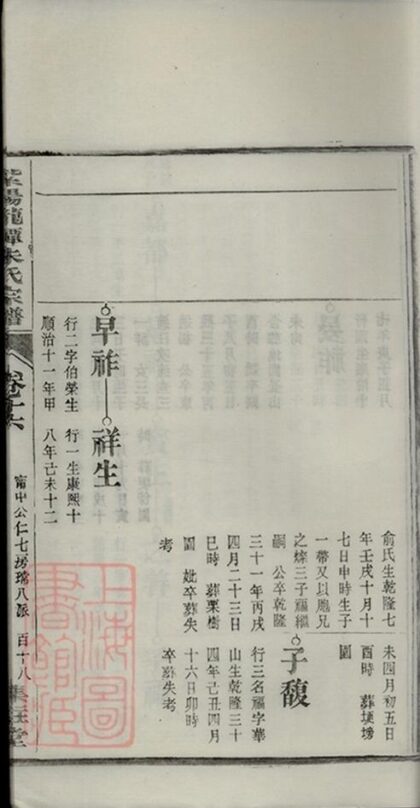 未四月初五日
酉時 葬塽塝
園
子馥
行三名福字華
山生乾隆三十
四年己丑四月
十六日卯時
卒葬失考
俞氏生乾隆七
年壬戌十月十
七日申時生子
一帶又以胞兄
之煒三子福繼
嗣 公卒乾隆
三十一年丙戌
四月二十三日
巳時 葬栗樹
園 妣卒葬失
考
早祚
祥生
行二字伯榮生
順治十一年甲
行一生康熙十
八年己未十二
陽龍潭朱氏宗譜
卷十六
甯中公仁七房瑞八派 百十八
上海圖書館藏